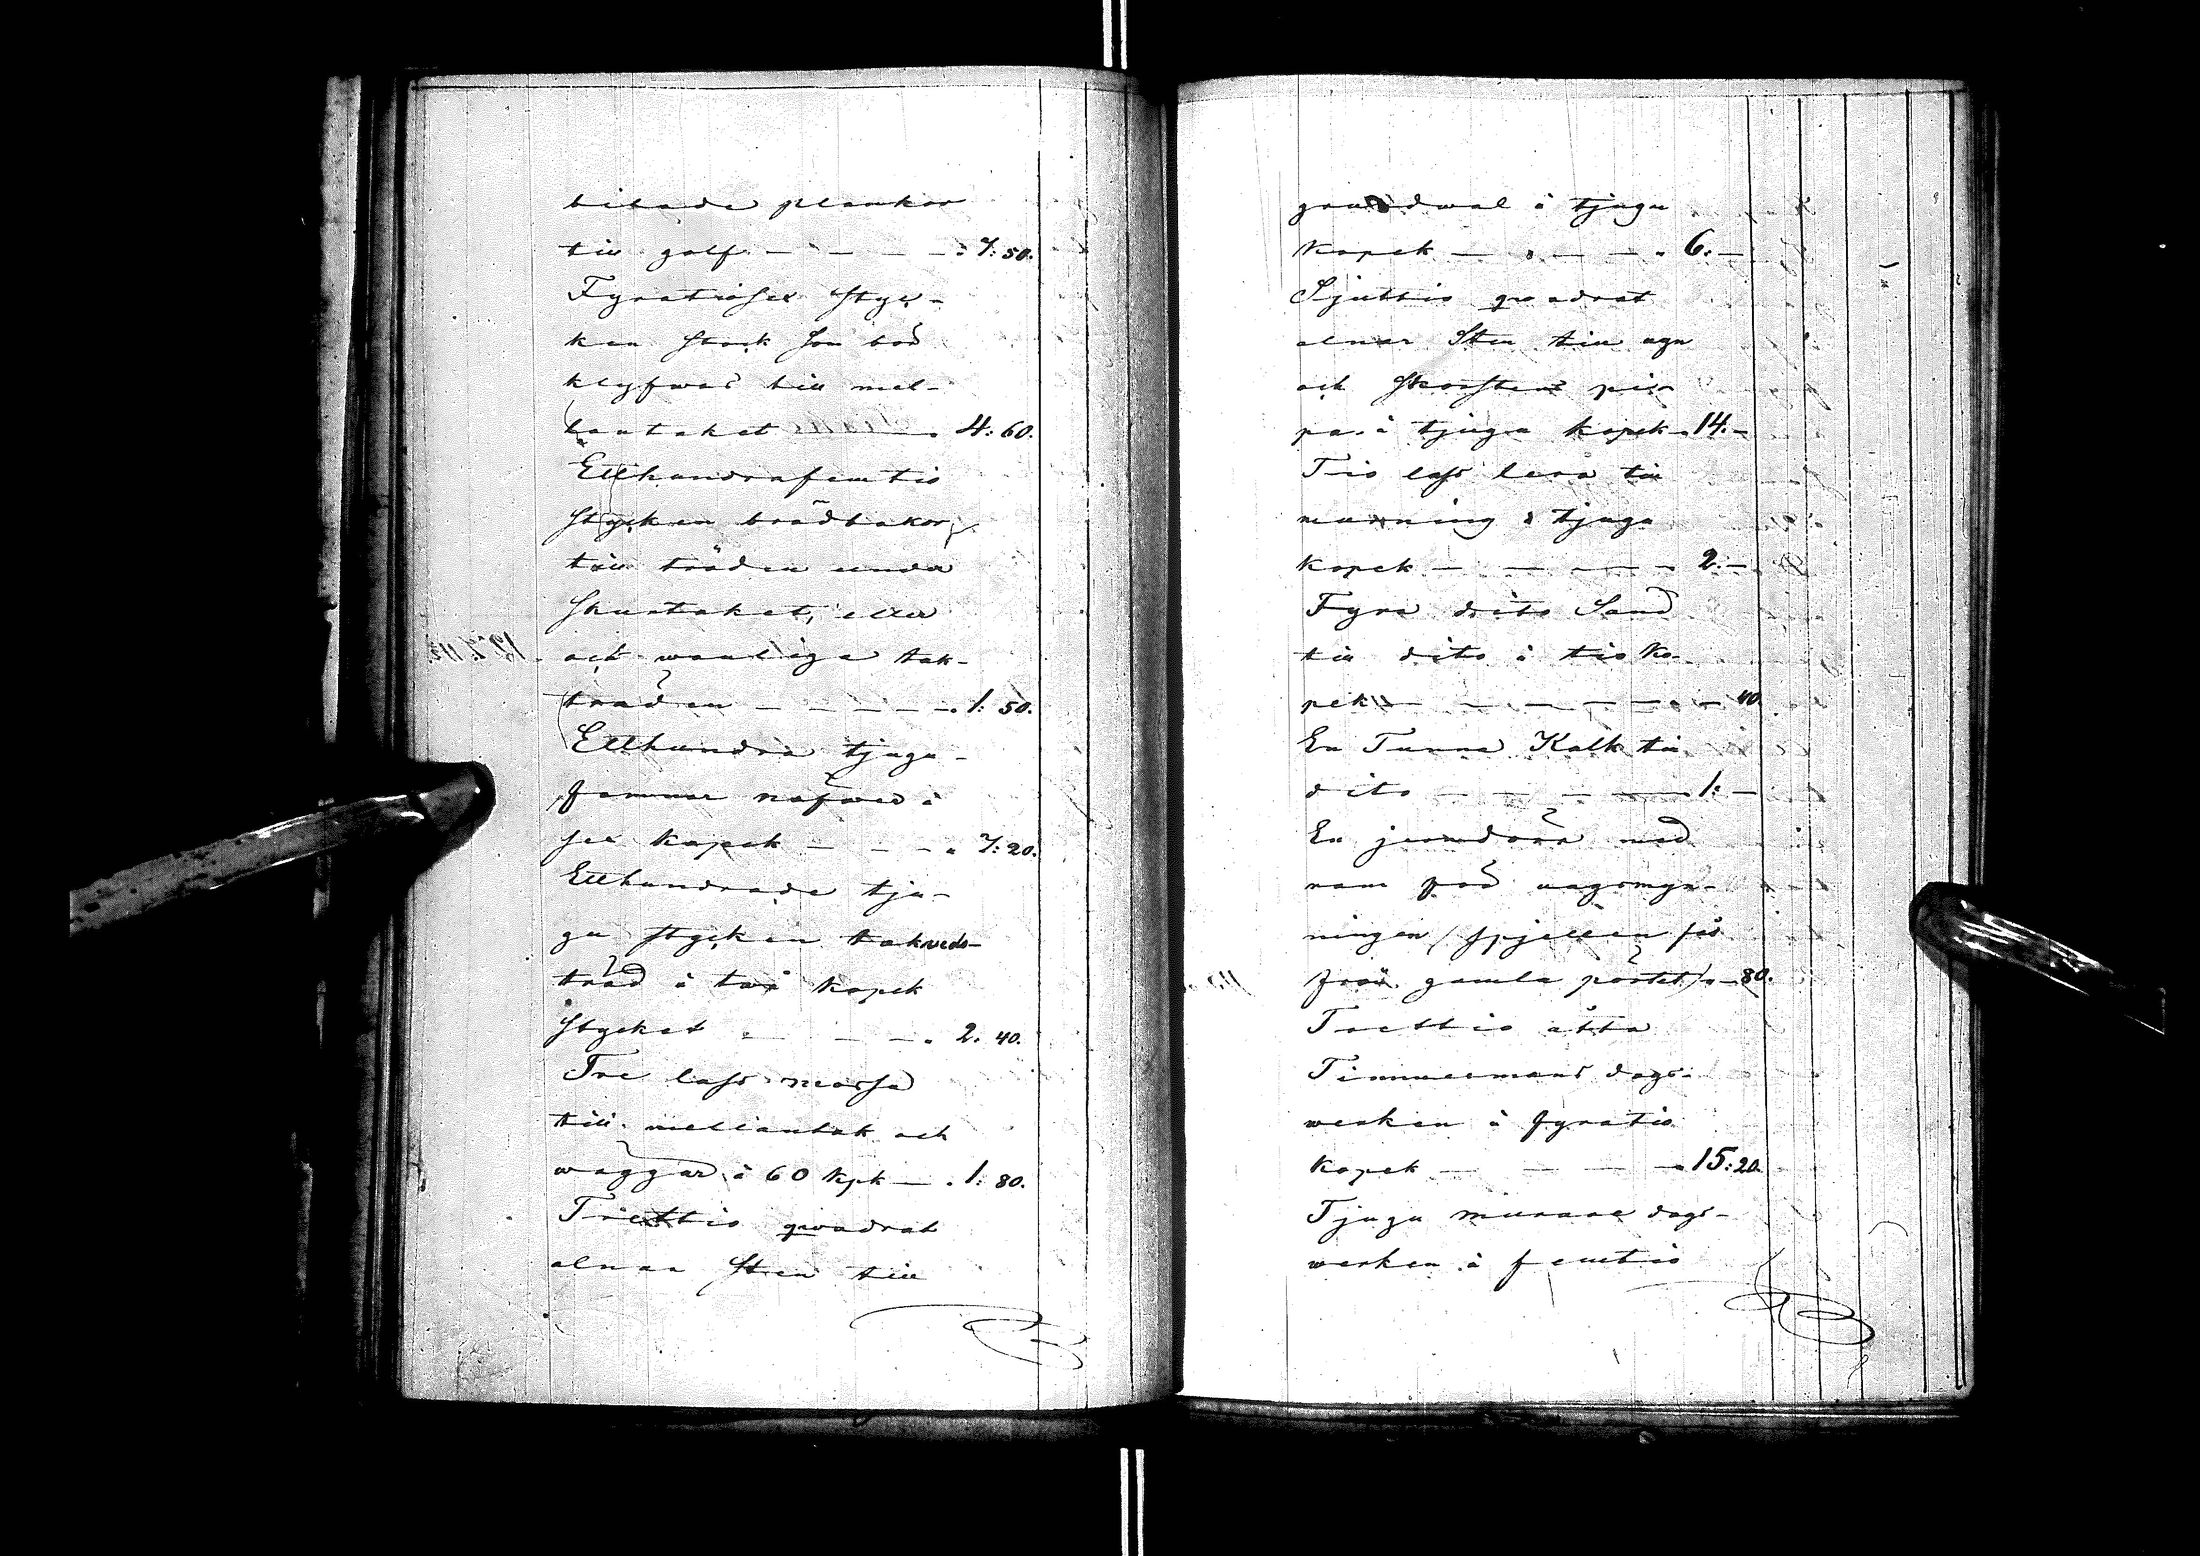 bilade plankor
till golf — — — — " 7: 50.
Fyratiosex styc-
ken stock som bör
klyfwas till mel-
lantaket — " 4: 60.
Etthundrafemtio
stycken brädbakor
till träden under
skurtaket, eller
och wanliga tak-
träden — — — — — " 1: 50.
Etthundra tjugu
famnar näfwer à
sex kopek — — — " 7: 20.
Etthundrade tju-
gu stycken takveds-
träd à två kopek
stycket — — — " 2. 40.
Tre lass mossa
till mellantak och
wäggar à 60 kpk — " 1: 80.
Trettio qwadrat
alnar sten till
grundwal à tjugu
kopek — — — — " 6. —
Sjuttio qwadrat
alnar Sten till ugn
och skorstens pi-
pa à tjugu kopek " 14. —
Tio lass lera till
murning à tjugu
kopek — — — — " 2. —
Fyra dito Sand
till dito à tio Ko-
pek — — — — — " — 40.
En Tunna Kalk till
dito — — — — 1: —
En jerndörr med
ram för ugnsmyn-
ningen (spjellen fås
från gamla pörtet) " — 80.
Trettio åtta
Timmermans dags-
werken à fyratio
kopek — — — — " 15: 20.
Tjugu murare dags-
werken à femtio